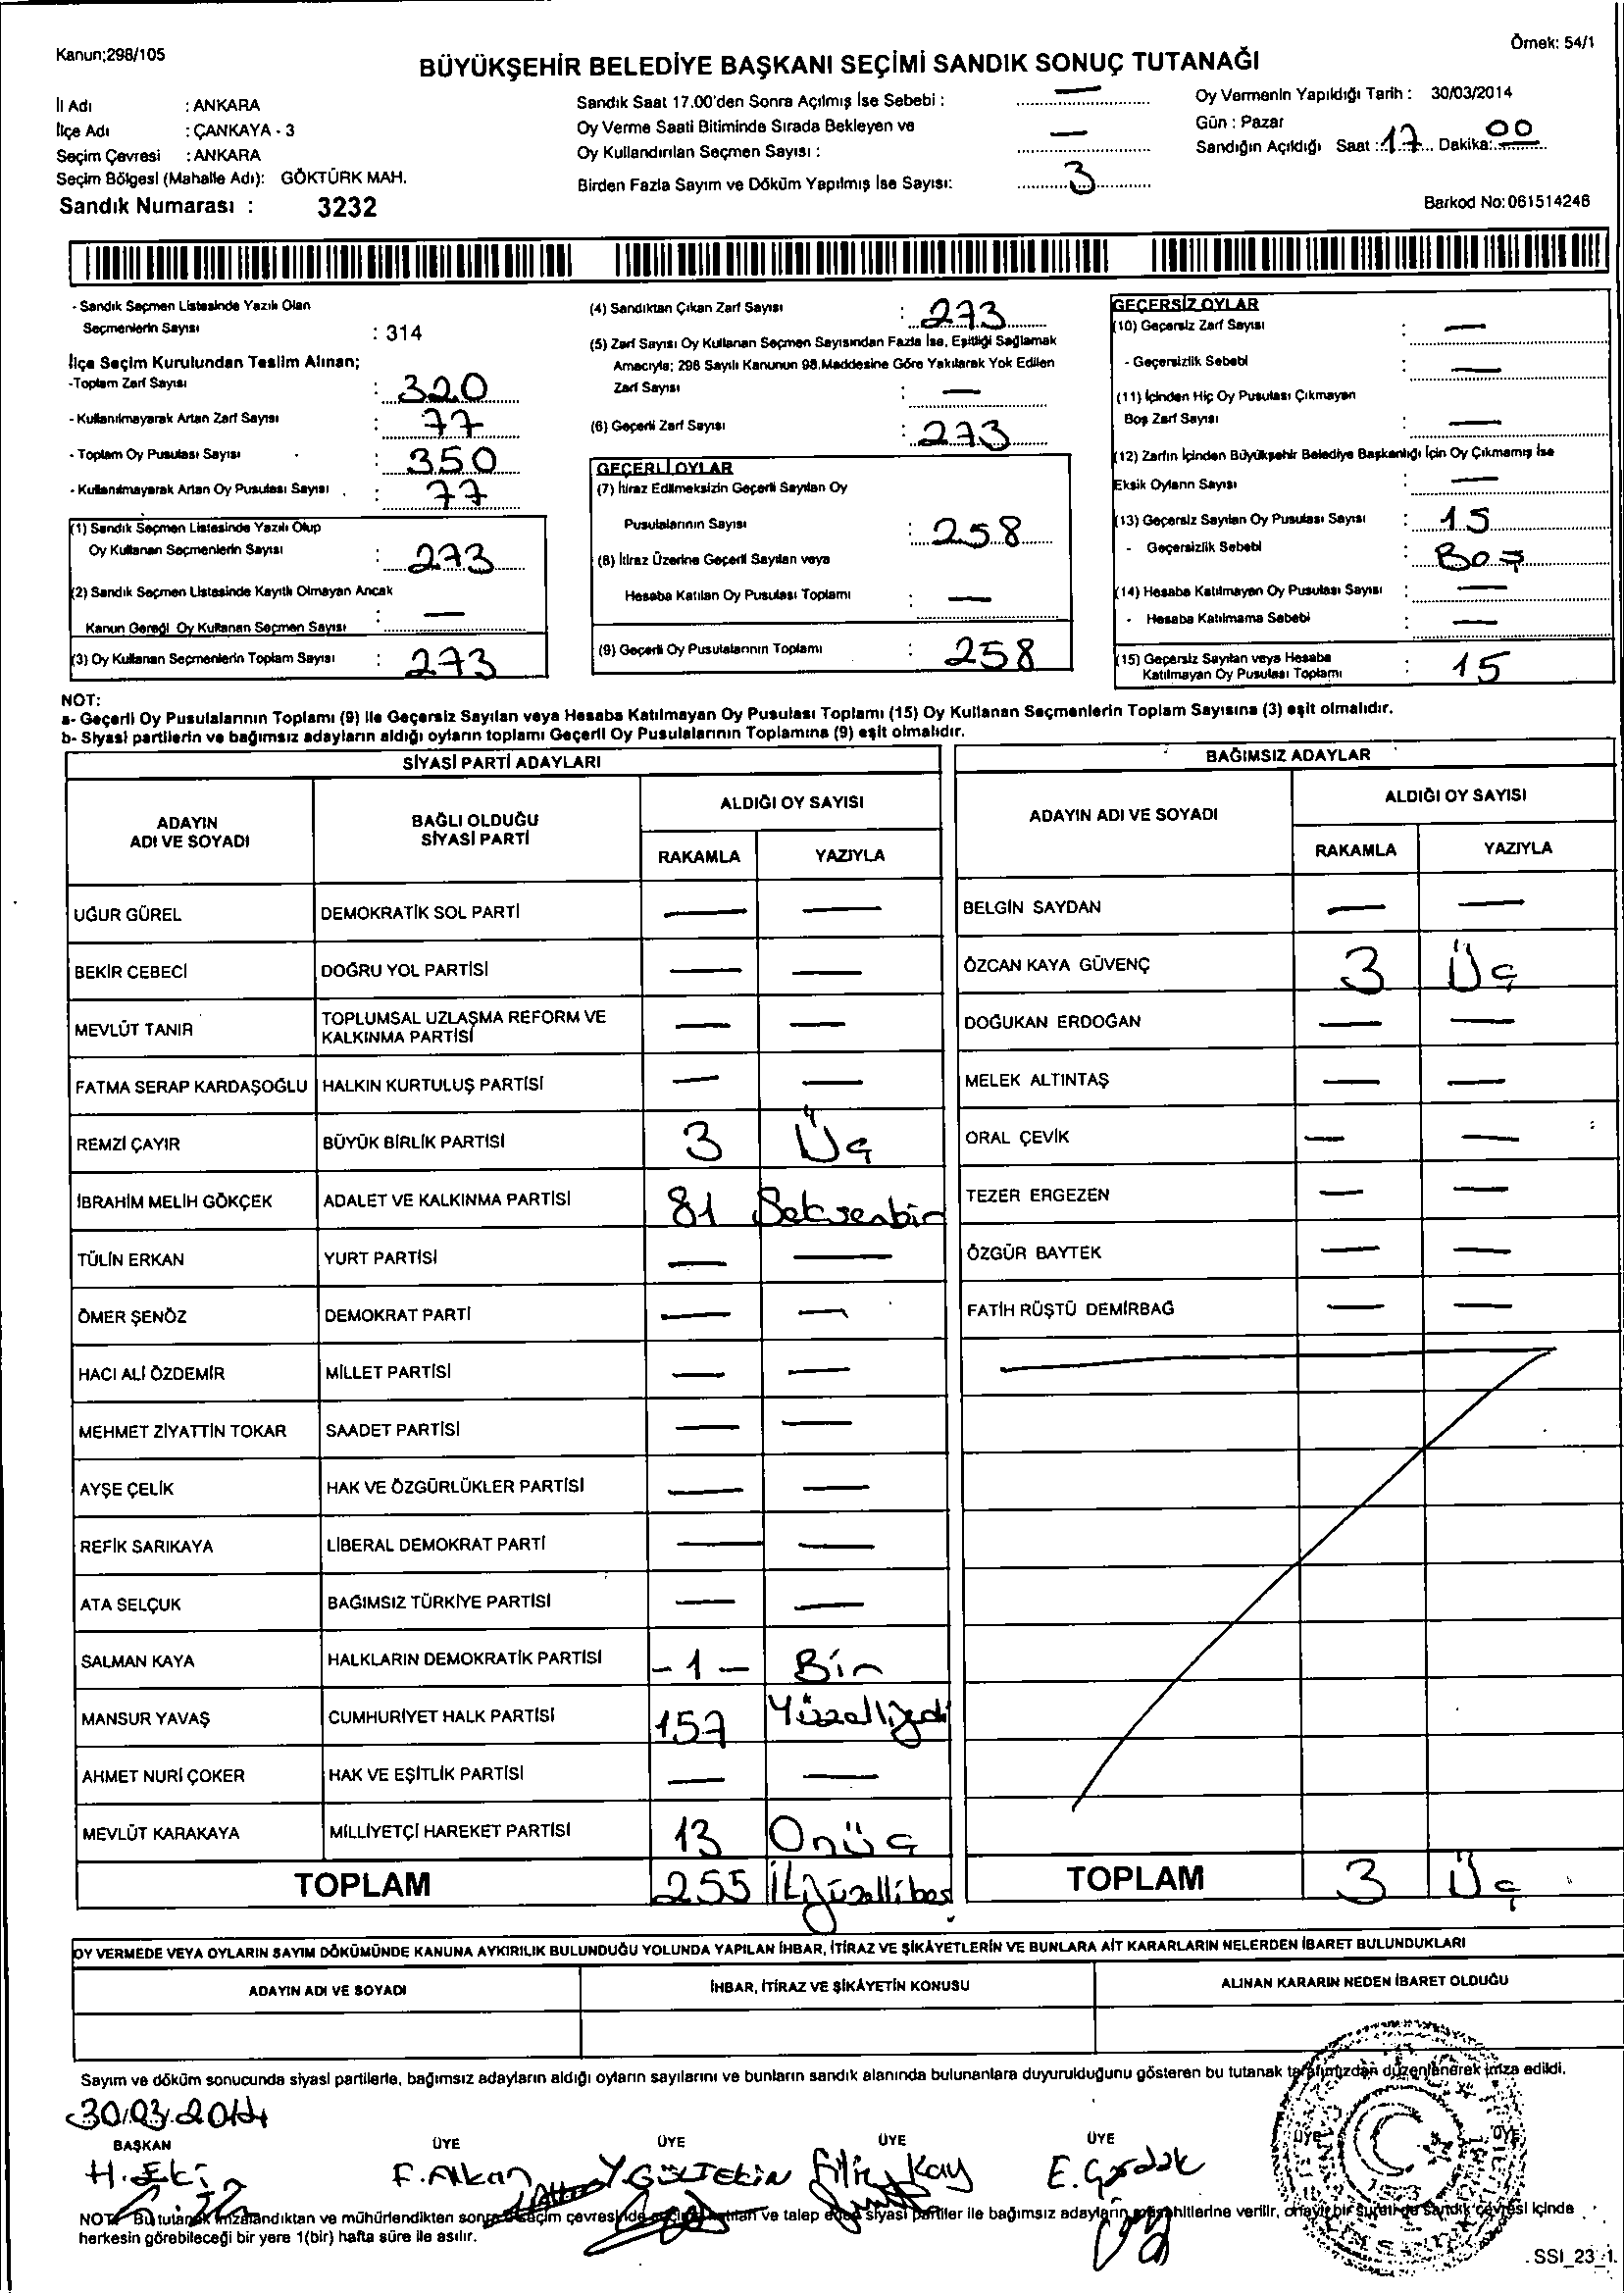 Kanun;298/105
Örnek: 54/1
BÜYÜKŞEHİR BELEDİYE BAŞKANI SEÇİMİ SANDIK SONUÇ TUTANAĞI
İl Adı : ANKARA
İlçe Adı : ÇANKAYA - 3
Seçim Çevresi : ANKARA
Seçim Bölgesi (Mahalle Adı): GÖKTÜRK MAH.
Sandık Numarası : 3232
Sandık Saat 17.00'den Sonra Açılmış İse Sebebi : —
Oy Verme Saati Bitiminde Sırada Bekleyen ve
Oy Kullandırılan Seçmen Sayısı : —
Birden Fazla Sayım ve Döküm Yapılmış İse Sayısı: 3
Oy Vermenin Yapıldığı Tarih : 30/03/2014
Gün : Pazar
Sandığın Açıldığı Saat : 17 Dakika: 00
Barkod No:061514246
- Sandık Seçmen Listesinde Yazılı Olan
Seçmenlerin Sayısı : 314
İlçe Seçim Kurulundan Teslim Alınan;
-Toplam Zarf Sayısı : 320
- Kullanılmayarak Artan Zarf Sayısı : 77
- Toplam Oy Pusulası Sayısı : 350
- Kullanılmayarak Artan Oy Pusulası Sayısı : 77
(1) Sandık Seçmen Listesinde Yazılı Olup
Oy Kullanan Seçmenlerin Sayısı : 273
(2) Sandık Seçmen Listesinde Kayıtlı Olmayan Ancak
Kanun Gereği Oy Kullanan Seçmen Sayısı : —
(3) Oy Kullanan Seçmenlerin Toplam Sayısı : 273
(4) Sandıktan Çıkan Zarf Sayısı : 273
(5) Zarf Sayısı Oy Kullanan Seçmen Sayısından Fazla İse, Eşitliği Sağlamak
Amacıyla; 298 Sayılı Kanunun 98.Maddesine Göre Yakılarak Yok Edilen
Zarf Sayısı : —
(6) Geçerli Zarf Sayısı : 273
GEÇERLİ OYLAR
(7) İtiraz Edilmeksizin Geçerli Sayılan Oy
Pusulalarının Sayısı : 258
(8) İtiraz Üzerine Geçerli Sayılan veya
Hesaba Katılan Oy Pusulası Toplamı : —
(9) Geçerli Oy Pusulalarının Toplamı : 258
GEÇERSİZ OYLAR
(10) Geçersiz Zarf Sayısı : —
- Geçersizlik Sebebi : —
(11) İçinden Hiç Oy Pusulası Çıkmayan
Boş Zarf Sayısı : —
(12) Zarfın İçinden Büyükşehir Belediye Başkanlığı İçin Oy Çıkmamış İse
Eksik Oyların Sayısı : —
(13) Geçersiz Sayılan Oy Pusulası Sayısı : 15
- Geçersizlik Sebebi : Boş
(14) Hesaba Katılmayan Oy Pusulası Sayısı : —
- Hesaba Katılmama Sebebi : —
(15) Geçersiz Sayılan veya Hesaba
Katılmayan Oy Pusulası Toplamı : 15
NOT:
a- Geçerli Oy Pusulalarının Toplamı (9) ile Geçersiz Sayılan veya Hesaba Katılmayan Oy Pusulası Toplamı (15) Oy Kullanan Seçmenlerin Toplam Sayısına (3) eşit olmalıdır.
b- Siyasi partilerin ve bağımsız adayların aldığı oyların toplamı Geçerli Oy Pusulalarının Toplamına (9) eşit olmalıdır.
SİYASİ PARTİ ADAYLARI
ADAYIN ADI VE SOYADI BAĞLI OLDUĞU SİYASİ PARTİ ALDIĞI OY SAYISI RAKAMLA YAZIYLA
UĞUR GÜREL DEMOKRATİK SOL PARTİ — —
BEKİR CEBECİ DOĞRU YOL PARTİSİ — —
MEVLÜT TANIR TOPLUMSAL UZLAŞMA REFORM VE KALKINMA PARTİSİ — —
FATMA SERAP KARDAŞOĞLU HALKIN KURTULUŞ PARTİSİ — —
REMZİ ÇAYIR BÜYÜK BİRLİK PARTİSİ 3 Üç
İBRAHİM MELİH GÖKÇEK ADALET VE KALKINMA PARTİSİ 81 Seksenbir
TÜLİN ERKAN YURT PARTİSİ — —
ÖMER ŞENÖZ DEMOKRAT PARTİ — —
HACI ALİ ÖZDEMİR MİLLET PARTİSİ — —
MEHMET ZİYATTİN TOKAR SAADET PARTİSİ — —
AYŞE ÇELİK HAK VE ÖZGÜRLÜKLER PARTİSİ — —
REFİK SARIKAYA LİBERAL DEMOKRAT PARTİ — —
ATA SELÇUK BAĞIMSIZ TÜRKİYE PARTİSİ — —
SALMAN KAYA HALKLARIN DEMOKRATİK PARTİSİ -1- Bir
MANSUR YAVAŞ CUMHURİYET HALK PARTİSİ 157 Yüzelliyedi
AHMET NURİ ÇOKER HAK VE EŞİTLİK PARTİSİ — —
MEVLÜT KARAKAYA MİLLİYETÇİ HAREKET PARTİSİ 13 Onüç
TOPLAM 255 İkiyüzellibeş
BAĞIMSIZ ADAYLAR
ADAYIN ADI VE SOYADI ALDIĞI OY SAYISI RAKAMLA YAZIYLA
BELGİN SAYDAN — —
ÖZCAN KAYA GÜVENÇ 3 Üç
DOĞUKAN ERDOĞAN — —
MELEK ALTINTAŞ — —
ORAL ÇEVİK — —
TEZER ERGEZEN — —
ÖZGÜR BAYTEK — —
FATİH RÜŞTÜ DEMİRBAĞ — —
TOPLAM 3 Üç
OY VERMEDE VEYA OYLARIN SAYIM DÖKÜMÜNDE KANUNA AYKIRILIK BULUNDUĞU YOLUNDA YAPILAN İHBAR, İTİRAZ VE ŞİKÂYETLERİN VE BUNLARA AİT KARARLARIN NELERDEN İBARET BULUNDUKLARI
ADAYIN ADI VE SOYADI İHBAR, İTİRAZ VE ŞİKÂYETİN KONUSU ALINAN KARARIN NEDEN İBARET OLDUĞU
Sayım ve döküm sonucunda siyasi partilerle, bağımsız adayların aldığı oyların sayılarını ve bunların sandık alanında bulunanlara duyurulduğunu gösteren bu tutanak tarafımızdan düzenlenerek imza edildi.
30.03.2014
BAŞKAN ÜYE ÜYE ÜYE ÜYE ÜYE ÜYE
H. Eki F. Alkan Y. GÜLTEKİN Filiz Kay
NOT: Bu tutanak imzalandıktan ve mühürlendikten sonra seçim çevresinde ve talep eden siyasi partiler ile bağımsız adayların müşahitlerine verilir, onaylı bir sureti de sandık çevresi içinde
herkesin görebileceği bir yere 1(bir) hafta süre ile asılır.
SSI_23_1.